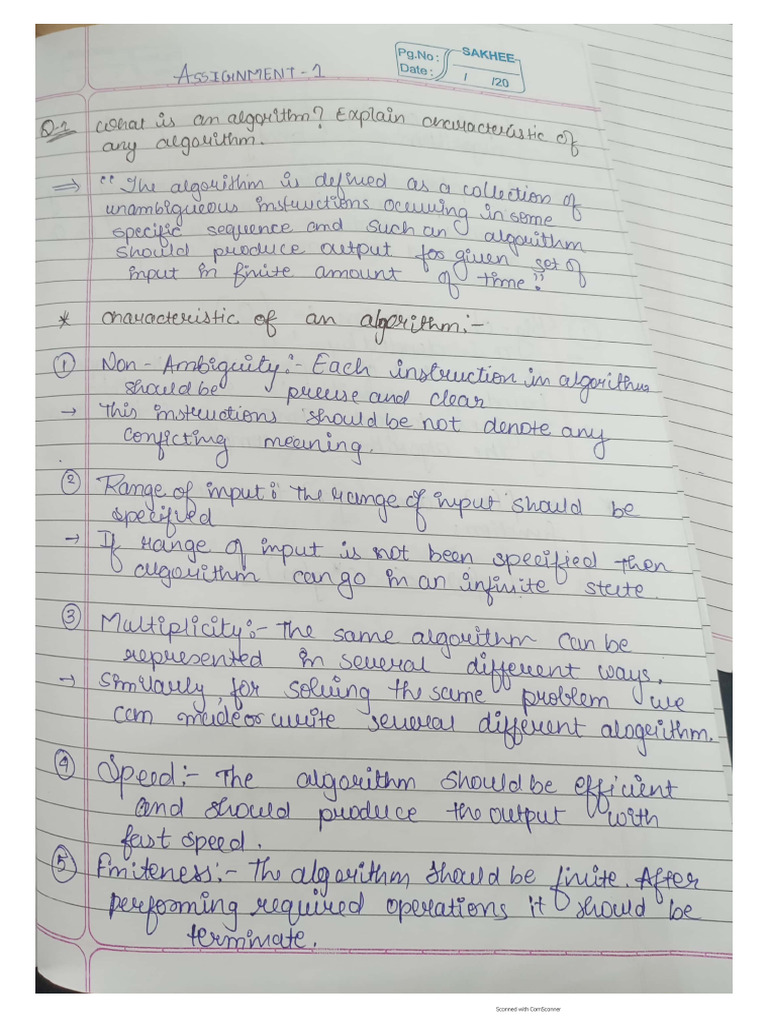 Pg.No: SAKHEE
Date: / /20
ASSIGNMENT-1
Q.1 What is an algorithm? Explain characteristic of
any algorithm.
⇒ "The algorithm is defined as a collection of
unambigueous instructions occuring in some
specific sequence and such an algorithm
should produce output for given set of
input in finite amount of time."
* characteristic of an algorithm:-
① Non-Ambiguity:- Each instruction in algorithm
should be precise and clear
→ This instructions should be not denote any
conficting meaning.
② Range of input: The range of input should be
specified
→ If range of input is not been specified then
algorithm can go in an infinite state.
③ Multiplicity:- The same algorithm can be
represented in several different ways.
→ Similarly, for solving the same problem we
can made or write several different alogerithm.
④ Speed:- The algorithm should be efficient
and should produce the output with
fast speed.
⑤ Finiteness:- The algorithm should be finite. After
performing required operations it should be
terminate.
Scanned with CamScanner